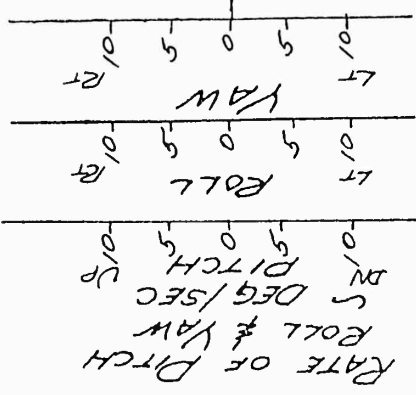 RATE OF PITCH
ROLL & YAW
~ DEG/SEC
DN PITCH UP
10 5 0 5 10
LT ROLL RT
10 5 0 5 10
YAW
LT RT
10 5 0 5 10